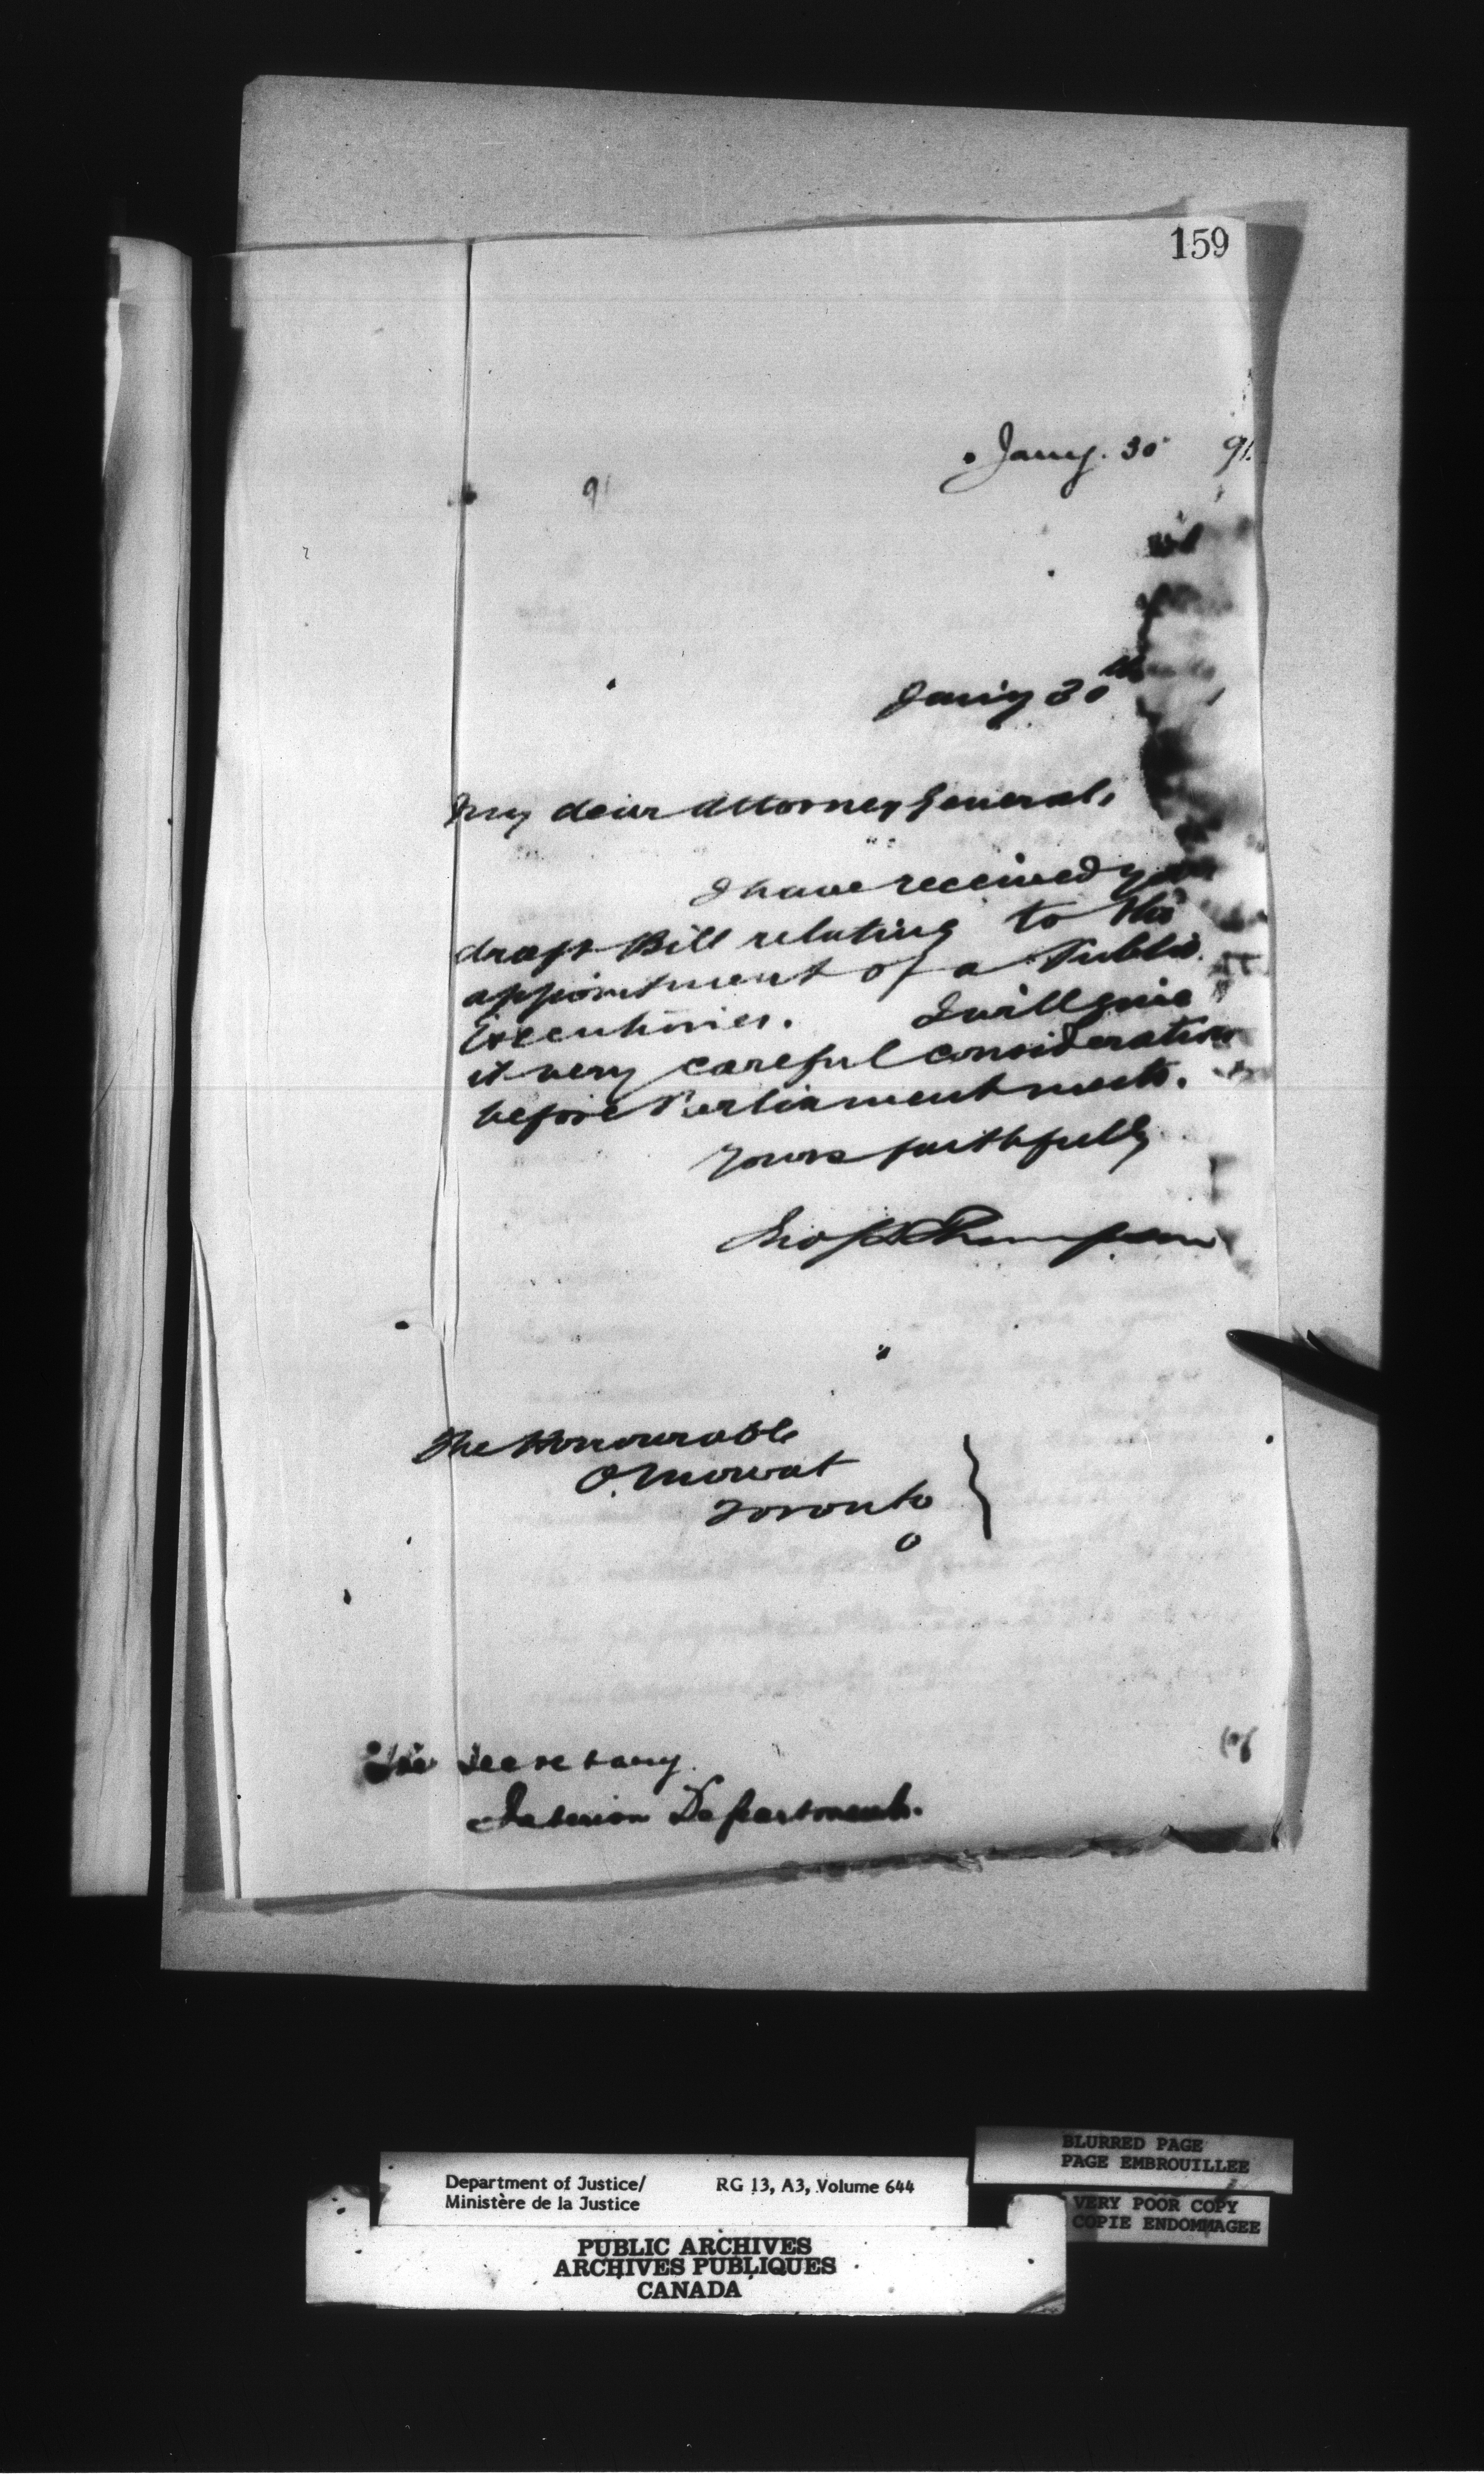 159
Jany. 30 91.
91
Jany 30th
My dear Attorney General,
I have received
draft Bill relating to the
appointment of a Public
Executioner. I will give
it very careful consideration
before Parliament meets.
Yours faithfully
Jno S D Thompson
The Honourable
O. Mowat
Toronto
O
The Secretary.
Interior Department.
Department of Justice/
Ministère de la Justice
RG 13, A3, Volume 644
BLURRED PAGE
PAGE EMBROUILLEE
VERY POOR COPY
COPIE ENDOMMAGEE
PUBLIC ARCHIVES
ARCHIVES PUBLIQUES
CANADA